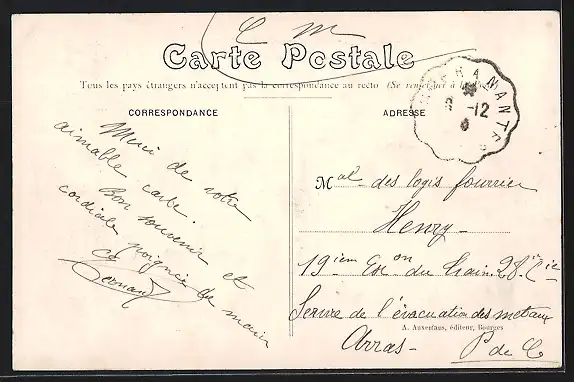 C m
Carte Postale
Tous les pays étrangers n'acceptent pas la correspondance au recto (Se renseigner à la Poste)
CORRESPONDANCE
ADRESSE
Merci de votre
aimable carte.
Bon souvenir et
cordiale poignée de main
A MANTES
-12
Mal des logis fourrier
Henry
19ièm Eson du train. 28e Cie
Service de l'évacuation des metaux
A. Auxenfans, éditeur, Bourges
Arras - P de C